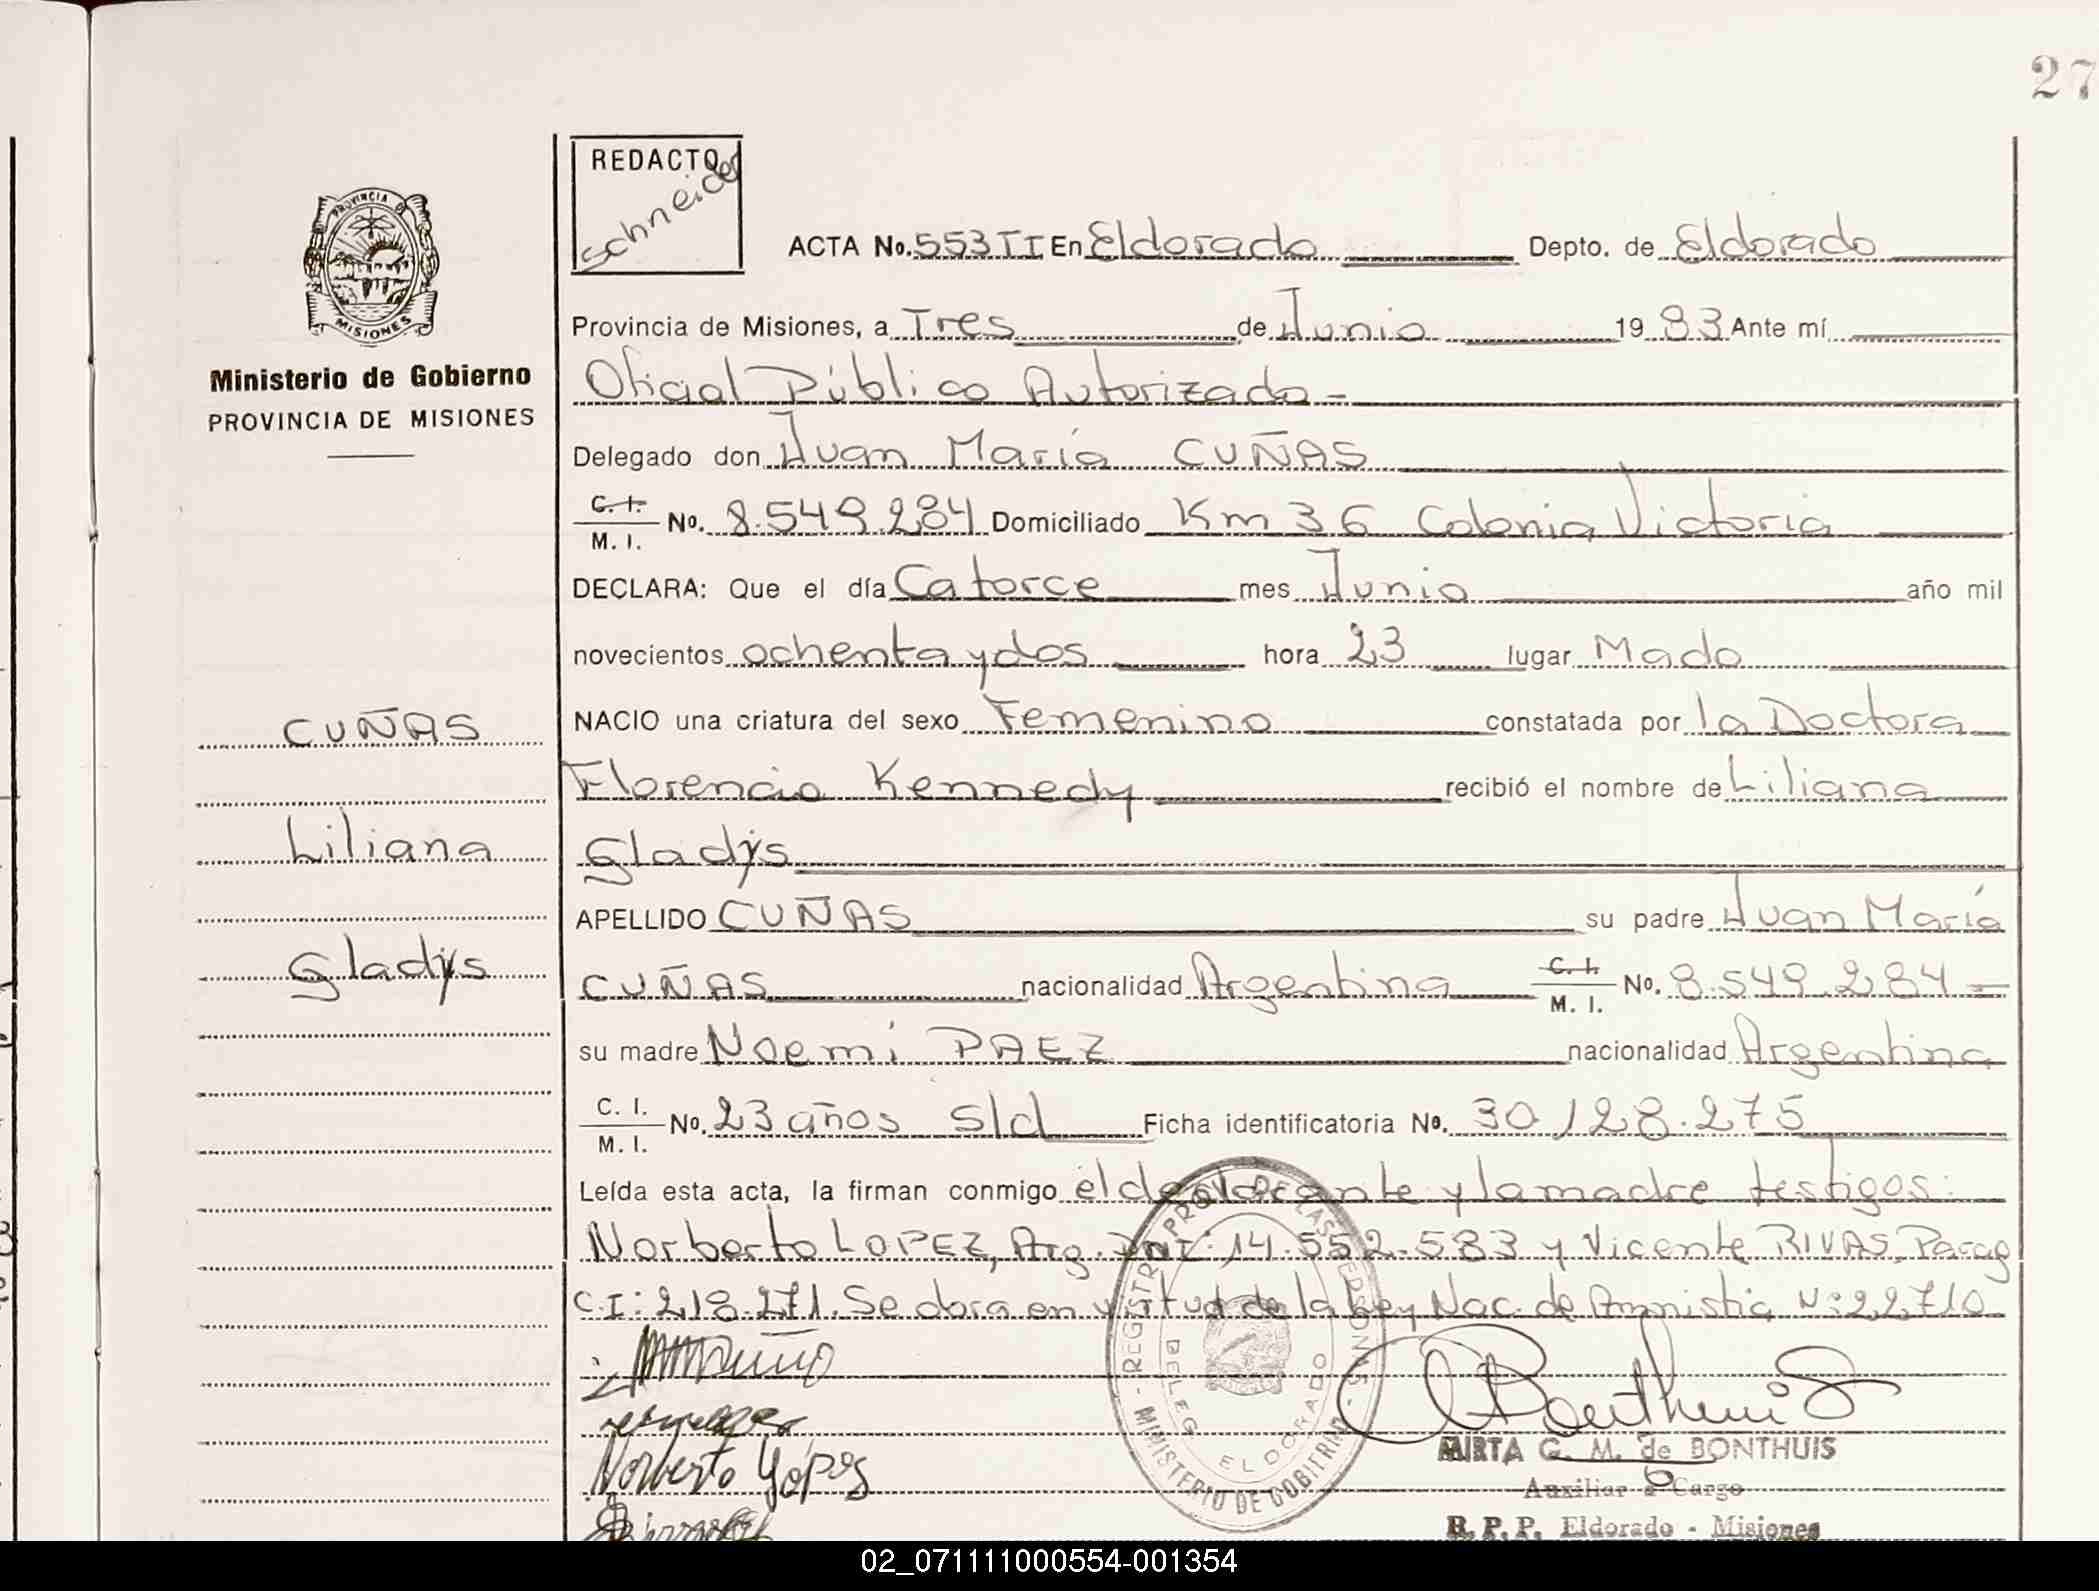 27
REDACTO
Schneider
PROVINCIA DE
MISIONES
Ministerio de Gobierno
PROVINCIA DE MISIONES
ACTA No. 553 II En Eldorado Depto. de Eldorado
Provincia de Misiones, a Tres de Junio 1983 Ante mí
Oficial Público Autorizado-
Delegado don Juan María CUÑAS
C. I.
M. I. No. 8.549.284 Domiciliado Km 36 Colonia Victoria
DECLARA: Que el día Catorce mes Junio año mil
novecientos ochenta y dos hora 23 lugar Mado
CUÑAS
NACIO una criatura del sexo Femenino constatada por la Doctora
Florencia Kennedy recibió el nombre de Liliana
Liliana
Gladys
APELLIDO CUÑAS su padre Juan María
Gladys
CUÑAS nacionalidad Argentina C. I.
M. I. No. 8.549.284-
su madre Noemi PAEZ nacionalidad Argentina
C. I.
M. I. No. 23 años s/d Ficha identificatoria No. 30.128.275
Leída esta acta, la firman conmigo el declarante y la madre testigos:
Norberto LOPEZ, Arg. DNI: 14.552.583 y Vicente RIVAS, Parag
C.I: 218.271. Se dara en virtud de la Ley Nac. de Amnistia N: 22710
REGISTRO PROV. DE LAS PERSONAS - MINISTERIO DE GOBIERNO -
DELEG ELDORADO
Norberto López
MIRTA G. M. de BONTHUIS
Auxiliar a Cargo
R. P. P. Eldorado - Misiones
02_071111000554-001354